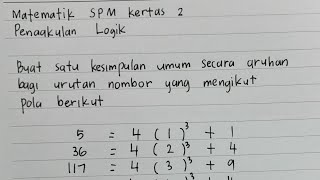 Matematik SPM kertas 2
Penaakulan Logik
Buat satu kesimpulan umum secara aruhan
bagi urutan nombor yang mengikut
pola berikut
5 = 4 ( 1 )³ + 1
36 = 4 ( 2 )³ + 4
117 = 4 ( 3 )³ + 9